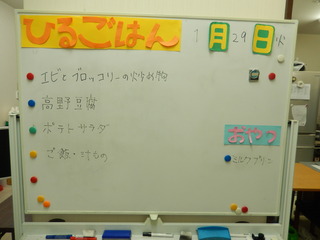 ひるごはん
1月29日火
エビとブロッコリーの炒め物
高野豆腐
ポテトサラダ
ご飯・汁もの
おやつ
ミルクプリン